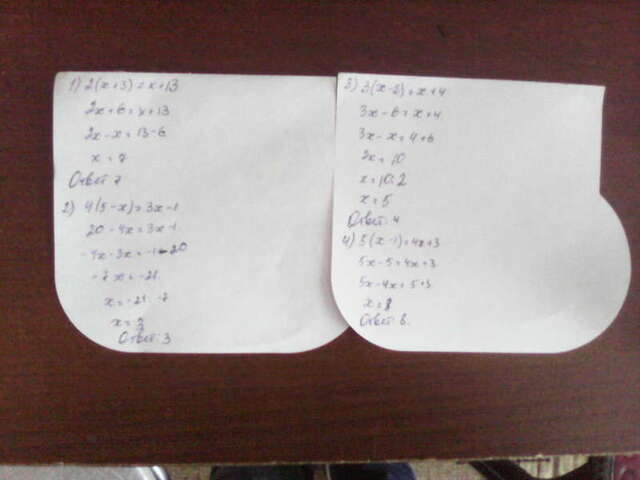 1) 2(x+3)=x+13
2x+6=x+13
2x-x=13-6
x=7
Ответ 7
2) 4(5-x)=3x-1
20-4x=3x-1
-4x-3x=-1-20
-7x=-21
x=-21:-7
x=3
Ответ: 3
3) 3(x-2)=x+4
3x-6=x+4
3x-x=4+6
2x=10
x=10:2
x=5
Ответ: 4
4) 5(x-1)=4x+3
5x-5=4x+3
5x-4x=5+3
x=8
Ответ: 8.